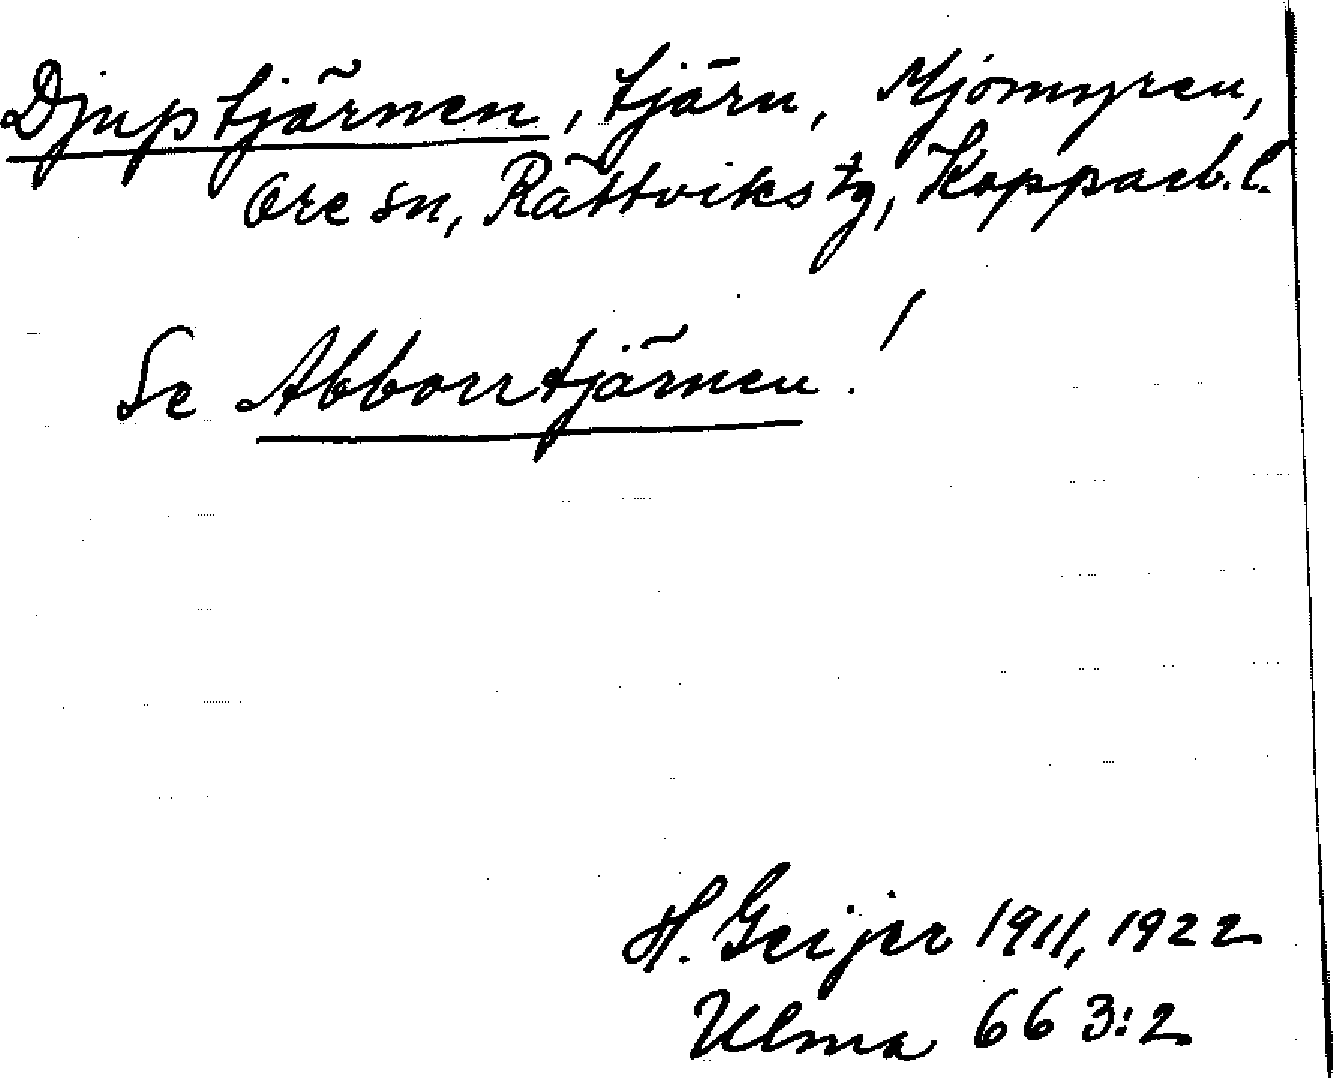 Djuptjärnen, tjärn, Mjömyren,
Ore sn, Rättviks tg, Kopparb. l.
Se Abborrtjärnen!
H. Geijer 1911, 1922
Ulma 66 3:2